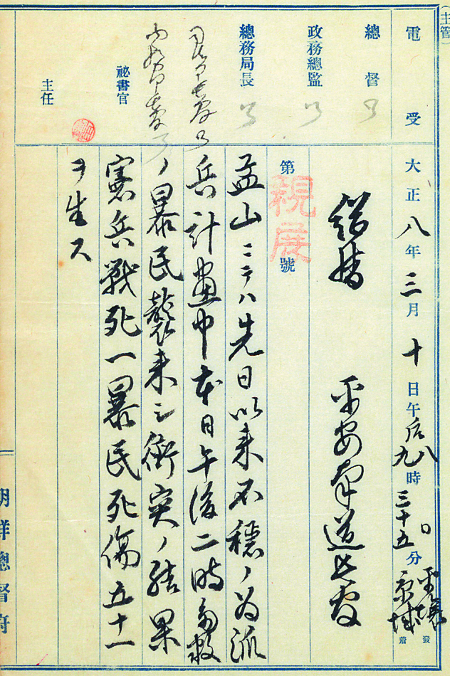 主管
電受 大正八年三月十日午后八時三十五分 平壤發
九 京城着
總督
平安南道長官
政務總監
總務局長
第 號
親展
孟山ニテハ先日以来不穏ノ為派
兵計畫中本日午後二時多数
ノ暴民襲来シ衝突ノ結果
憲兵戰死一暴民死傷五十一
ヲ生ス
祕書官
主任
朝鮮總督府